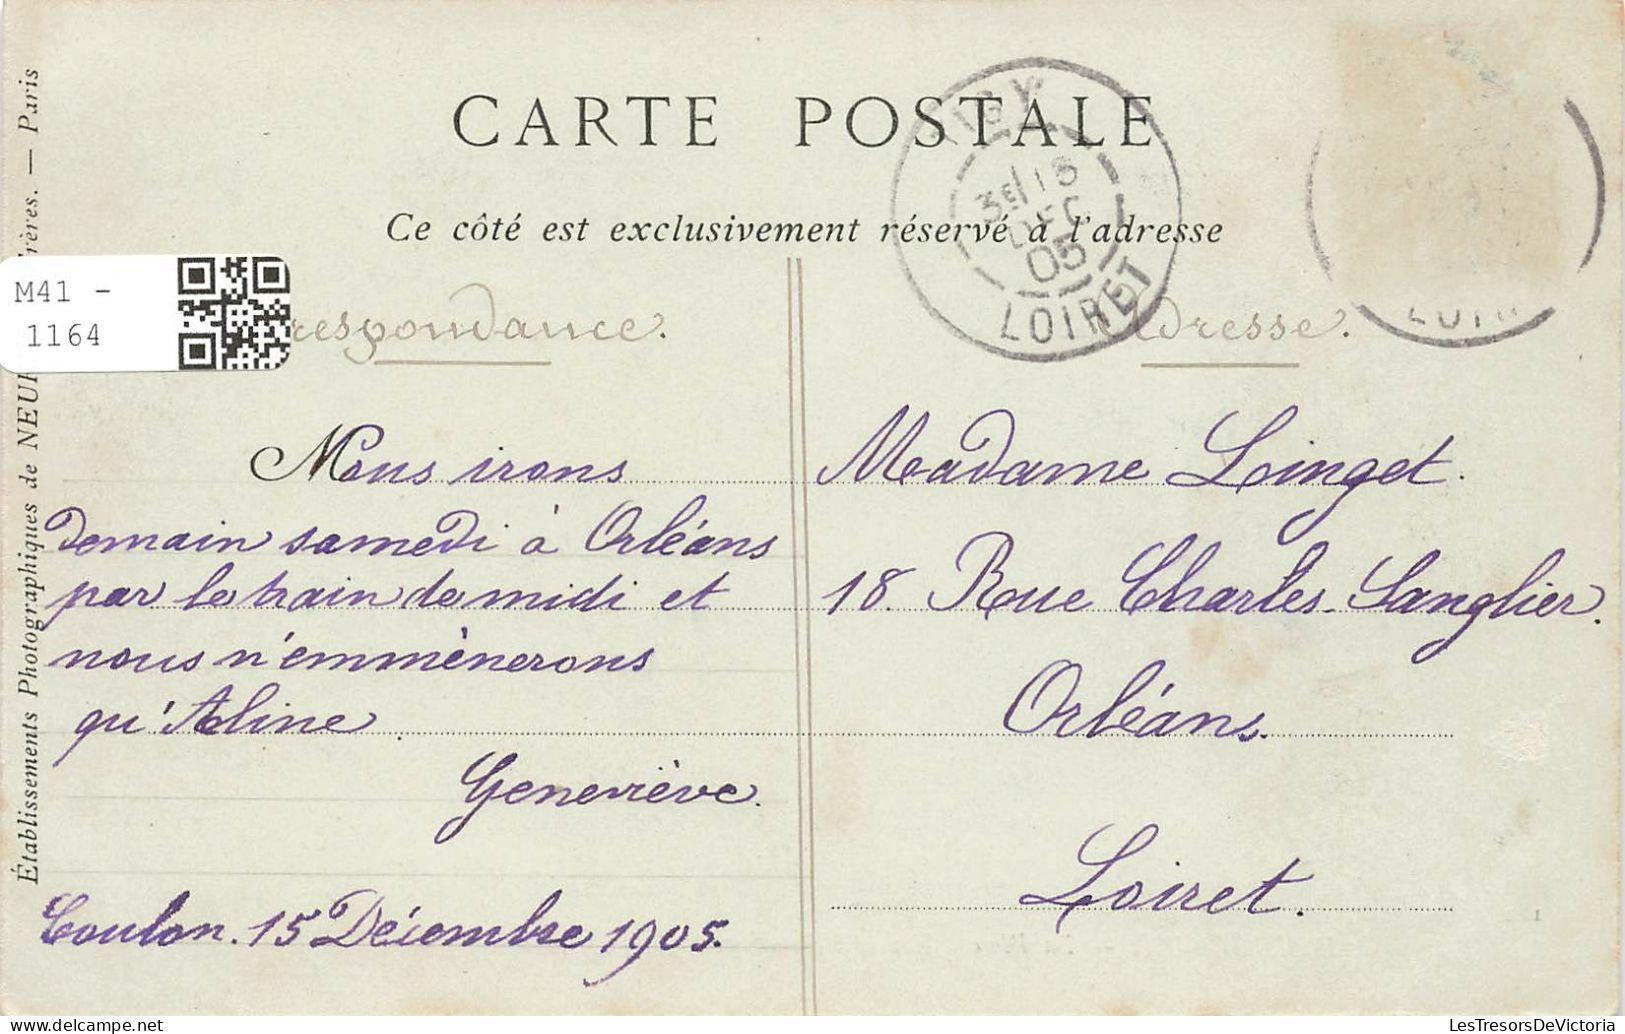 CARTE POSTALE
Ce côté est exclusivement réservé à l'adresse
3E/15
DEC
05
LOIRET
M41 -
1164
respondance.
dresse.
Nous irons
demain samedi à Orléans
par le train de midi et
nous n'emmènerons
qu'Aline.
Geneviève.
Coulon. 15 Décembre 1905.
Madame Loinget.
18. Rue Charles-Sanglier.
Orléans.
Loiret.
Établissements Photographiques de NEUR rères. — Paris
1
LesTresorsDeVictoria.com
delcampe.net